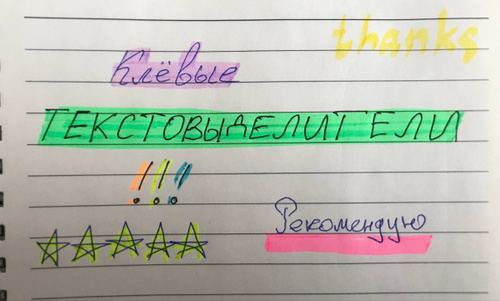 thanks
Клёвые
ТЕКСТОВЫДЕЛИТЕЛИ
!!!
Рекомендую